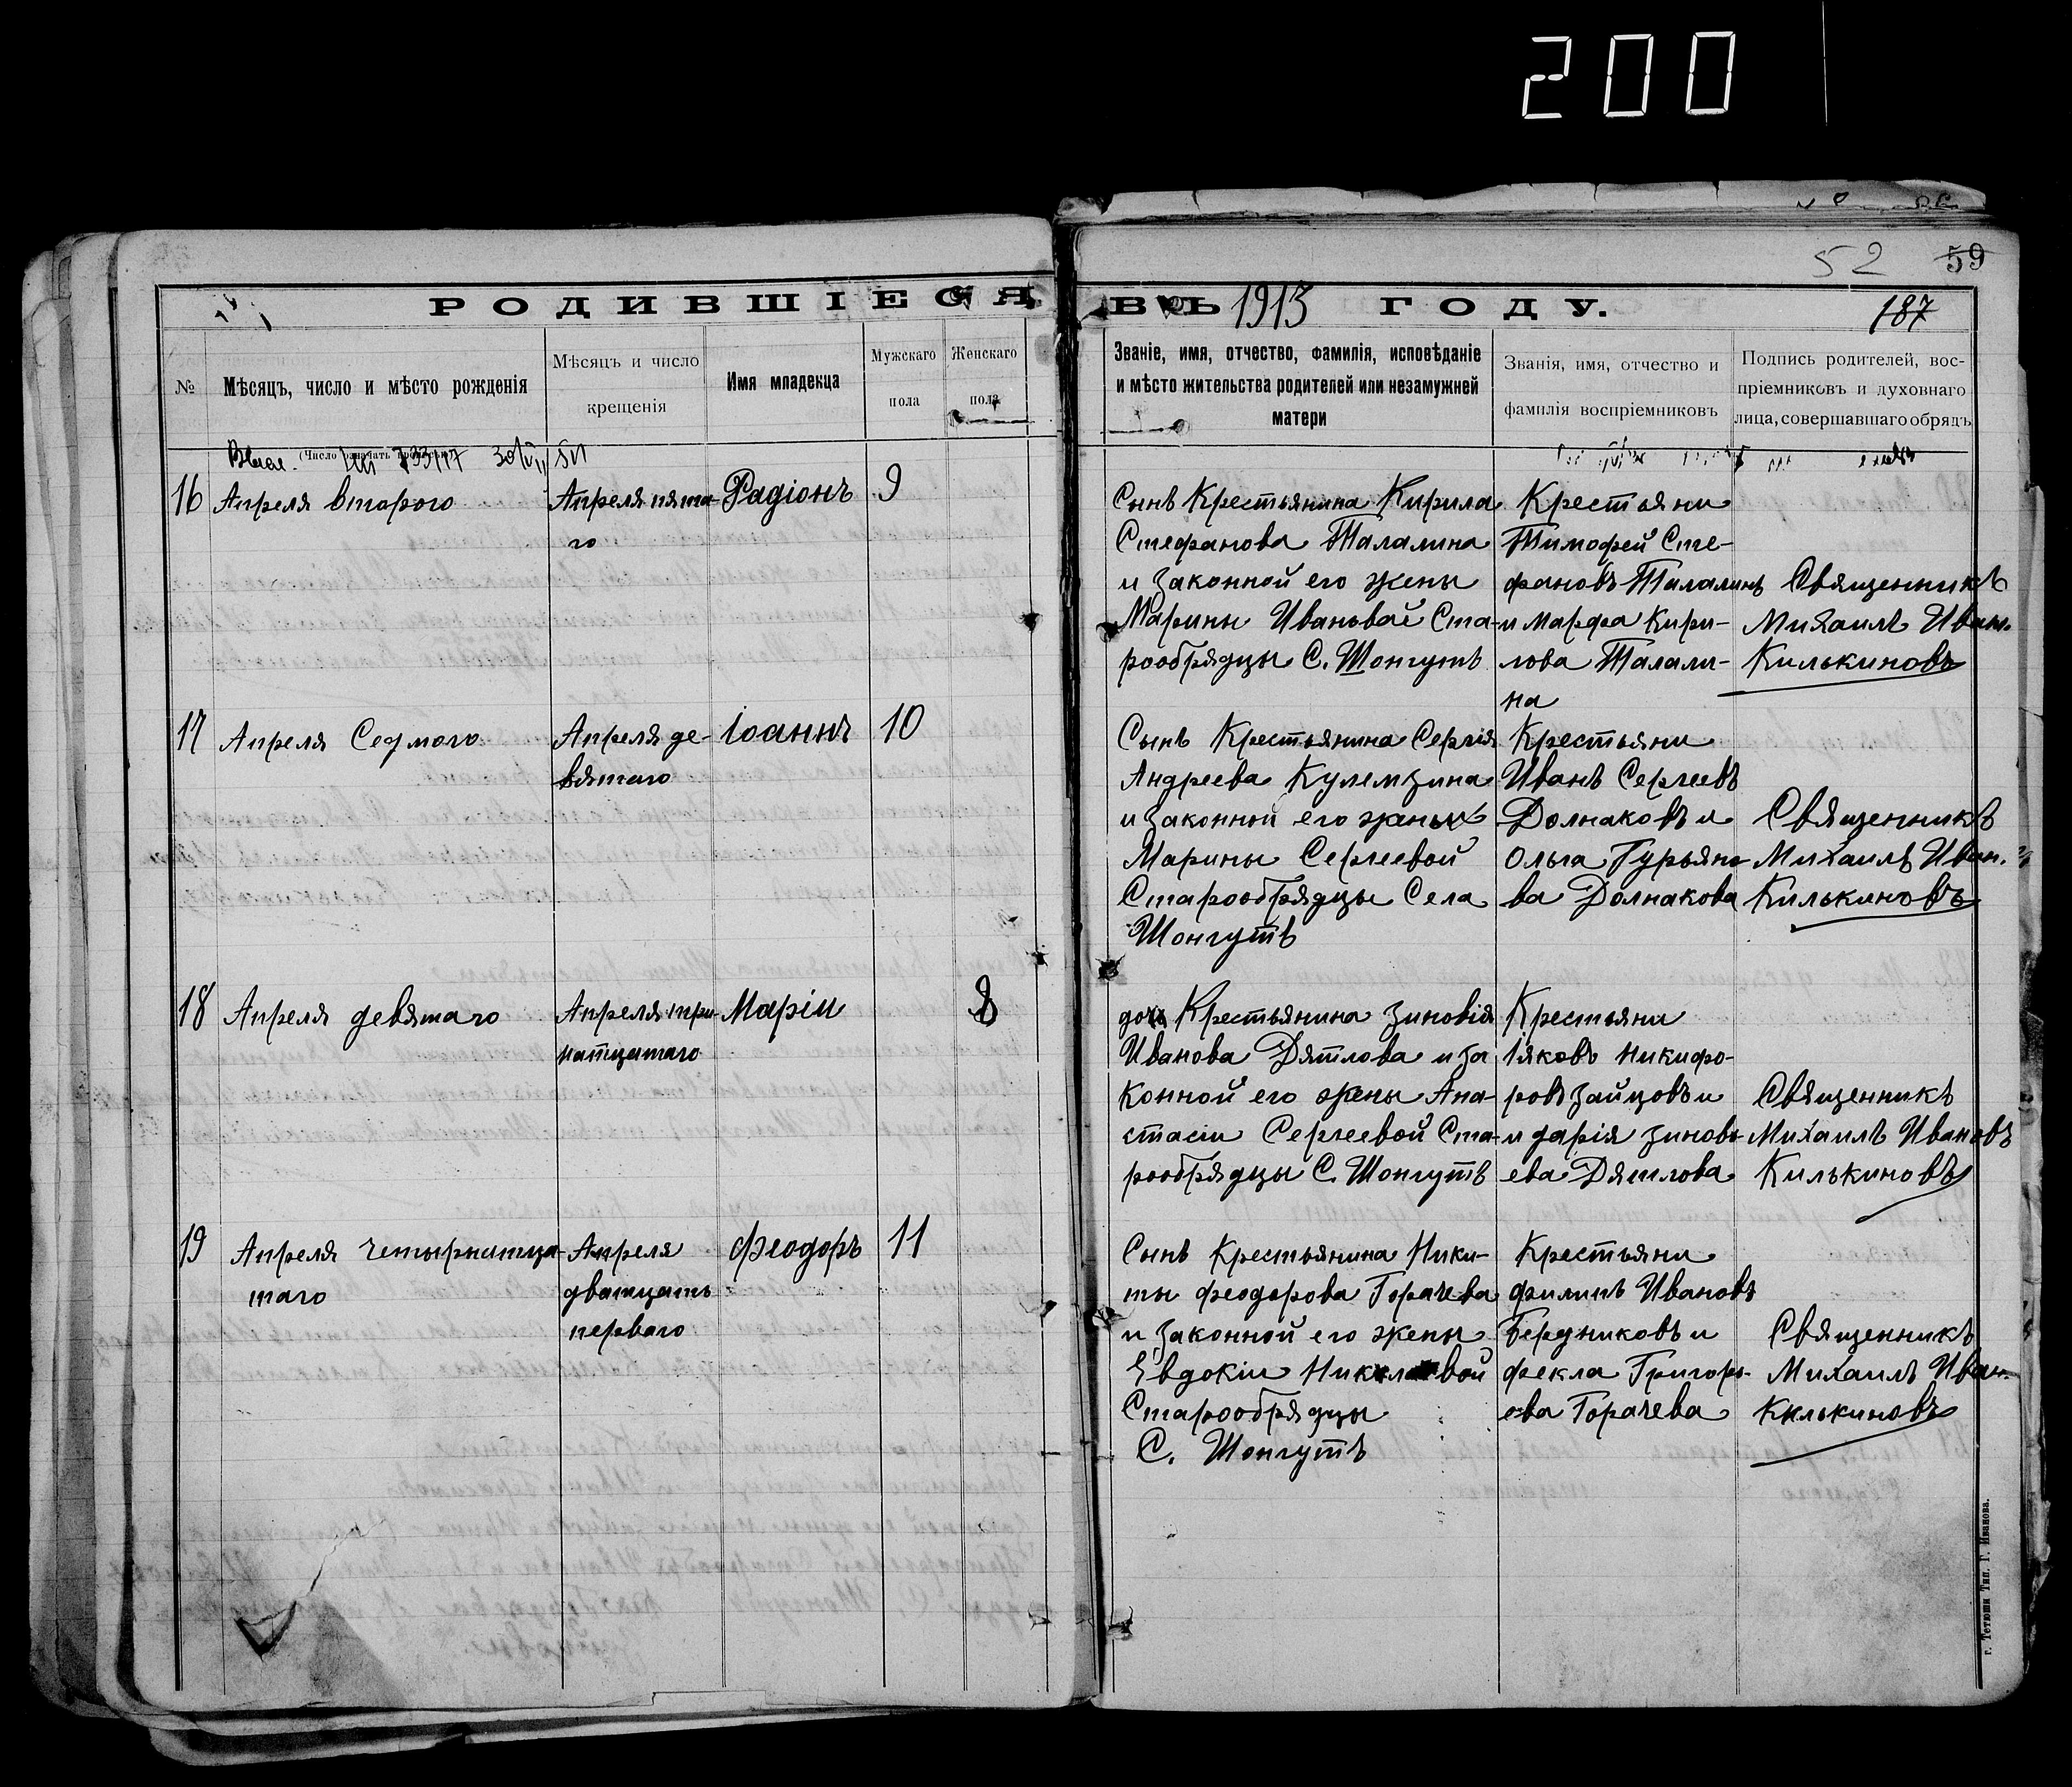 200
52 59
РОДИВШІЕСЯ ВЪ 1913 ГОДУ.
187
№
Мѣсяцъ, число и мѣсто рожденія
Мѣсяцъ и число
крещенія
Имя младенца
Мужскаго
пола
Женскаго
пола
Званіе, имя, отчество, фамилія, исповѣданіе
и мѣсто жительства родителей или незамужней
матери
Званія, имя, отчество и
фамилія воспріемниковъ
Подпись родителей, вос-
пріемниковъ и духовнаго
лица, совершавшаго обрядъ
16
Апреля второго
Апреля пята-
го
Радіонъ
9
Сынъ Крестьянина Кирила
Стефанова Талалина
и законной его жены
Марины Ивановай Ста-
рообрядцы С. Шонгутъ
Крестьяни
Тимофей Сте-
фановъ Талалинъ
и Марфа Кири-
лова Талали-
на
Священникъ
Михаилъ Иван.
Килькиновъ
17
Апреля Седмого
Апреля де-
вятаго
Іоаннъ
10
Сынъ Крестьянина Сергія
Андреева Кулемзина
и законной его жаны
Марины Сергеевой
Старообрядцы Села
Шонгутъ
Крестьяни
Иванъ Сергеевъ
Долнаковъ и
Ольга Гурьяно-
ва Долнакова
Священникъ
Михаилъ Иван.
Килькиновъ
18
Апреля девятаго
Апреля три-
натцатаго
Маріи
8
дочь Крестьянина Зиновія
Иванова Дятлова и за
конной его жены Ана-
стасіи Сергеевой Ста-
рообрядцы С. Шонгутъ
Крестьяни
Іяковъ Никифо-
ровъ Зайцовъ и
и дарія Зиновь-
ева Дятлова
Священникъ
Михаилъ Ивановъ
Килькиновъ
19
Апреля четырнатца-
таго
Апреля
дватцать
перваго
Феодоръ
11
Сынъ Крестьянина Ники-
ты Феодорова Горачева
и законной его жены
Евдокіи
Старообрядцы
С. Шонгутъ
Крестьяни
Филипъ Ивановъ
Бердниковъ и
Фекла Григорь-
ева Горачева
Священникъ
Михаилъ Иван.
Килькиновъ
г. Тетюши Тип. Г. Иванова.